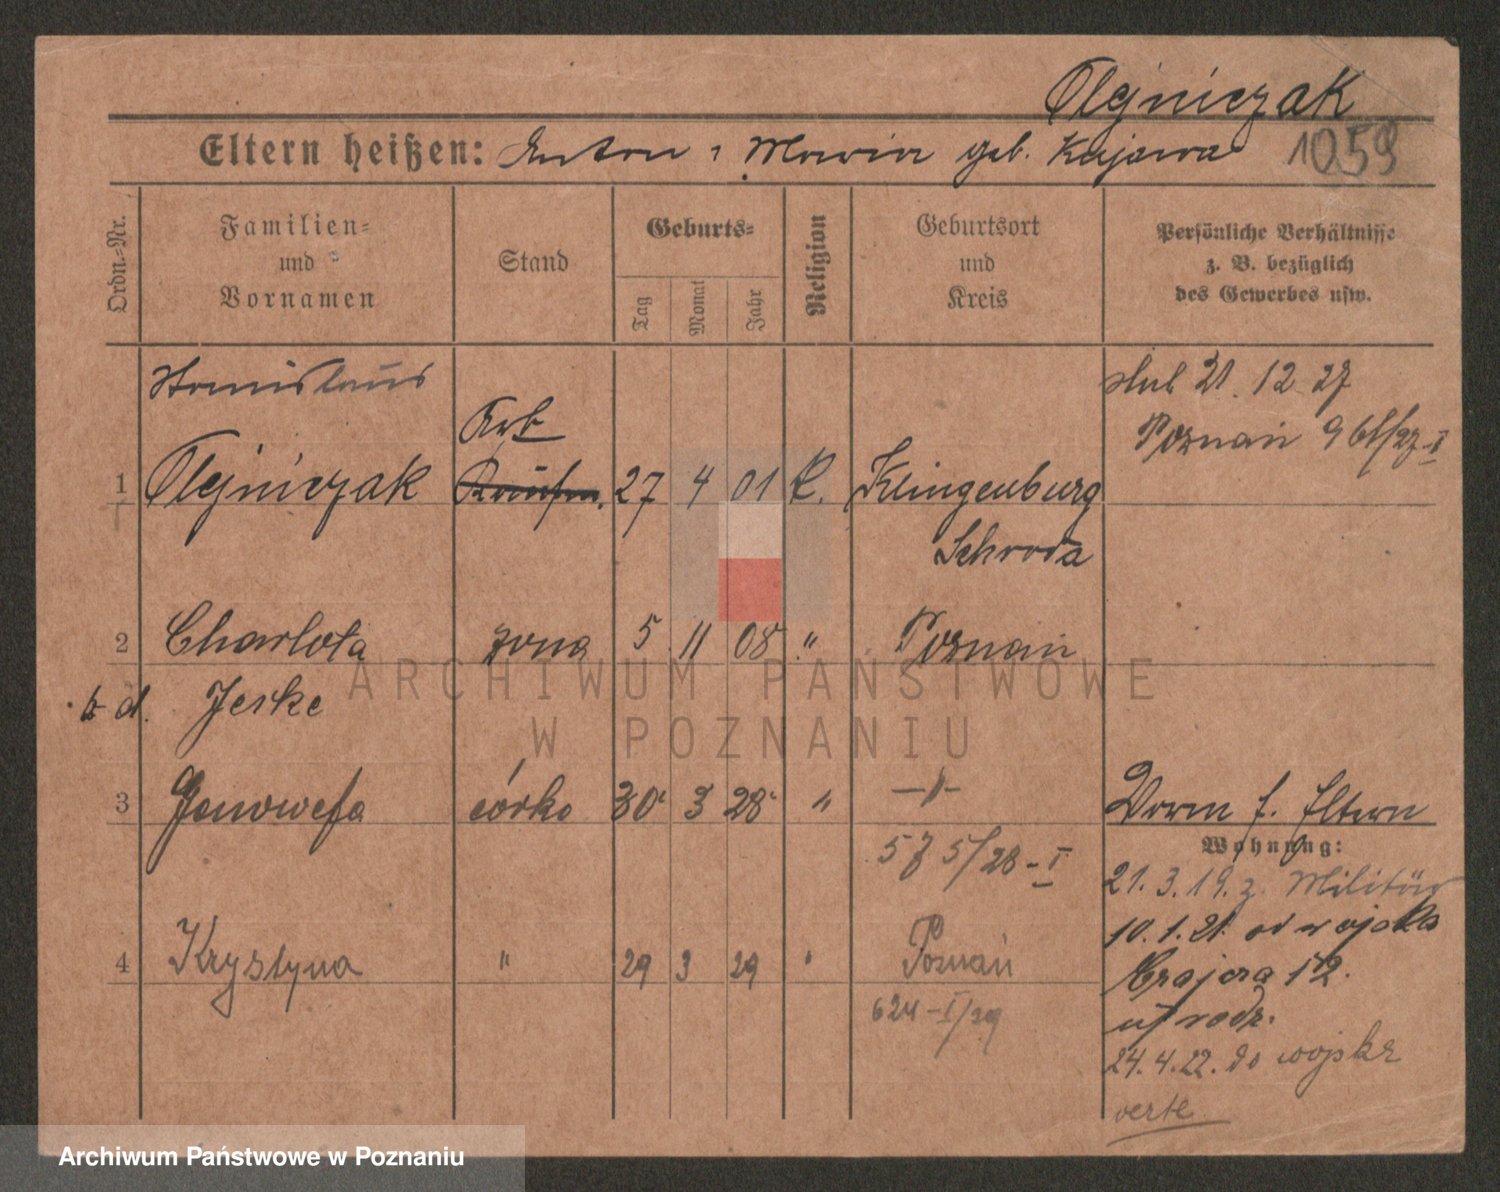 Olejniczak
Eltern heißen: Anton, Maria geb. Kujawa 1059
Ordn=Nr.
Familien=
und
Vornamen
Stand
Geburts=
Tag
Monat
Jahr
Religion
Geburtsort
und
Kreis
Persönliche Verhältnisse
z. B. bezüglich
des Gewerbes usw.
Stanislaus
ślub 21. 12 27
Arb
Poznań
1 Olejniczak Kaufm. 27 4 01 K. Klingenburg
Schroda
2 Charlota żona 5 11 08 " Poznań
z d. Jeske
3 Genowefa córka 30 3 28 " —"—
Vorm f. Eltern
Wohnung:
575/28-I
21. 3. 19. z. Militär
10. 1. 21. od wojska
4 Krystyna " 29 3 29 " Poznań
12.
624-I/29
u rodz.
24. 4. 22. do wojska
verte
ARCHIWUM PAŃSTWOWE
W POZNANIU
Archiwum Państwowe w Poznaniu